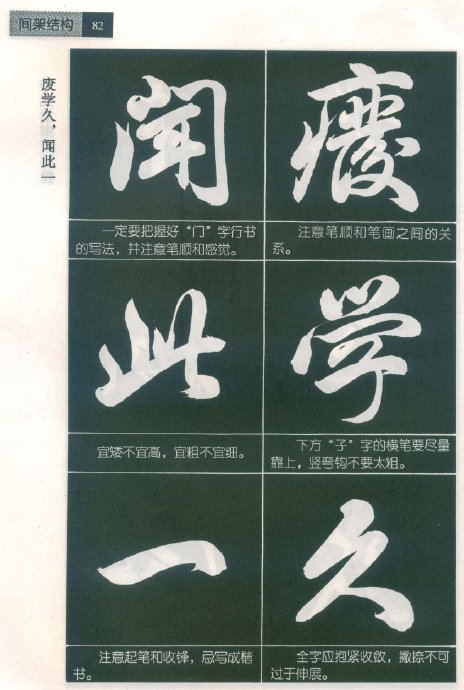 间架结构 82
废学久，闻此一
癈
注意笔顺和笔画之间的关
系。
学
下方“子”字的横笔要尽量
靠上，竖弯钩不要太粗。
久
全字应抱紧收敛，撇捺不可
过于伸展。
闻
一定要把握好“门”字行书
的写法，并注意笔顺和感觉。
此
宜矮不宜高，宜粗不宜细。
一
注意起笔和收锋，忌写成楷
书。